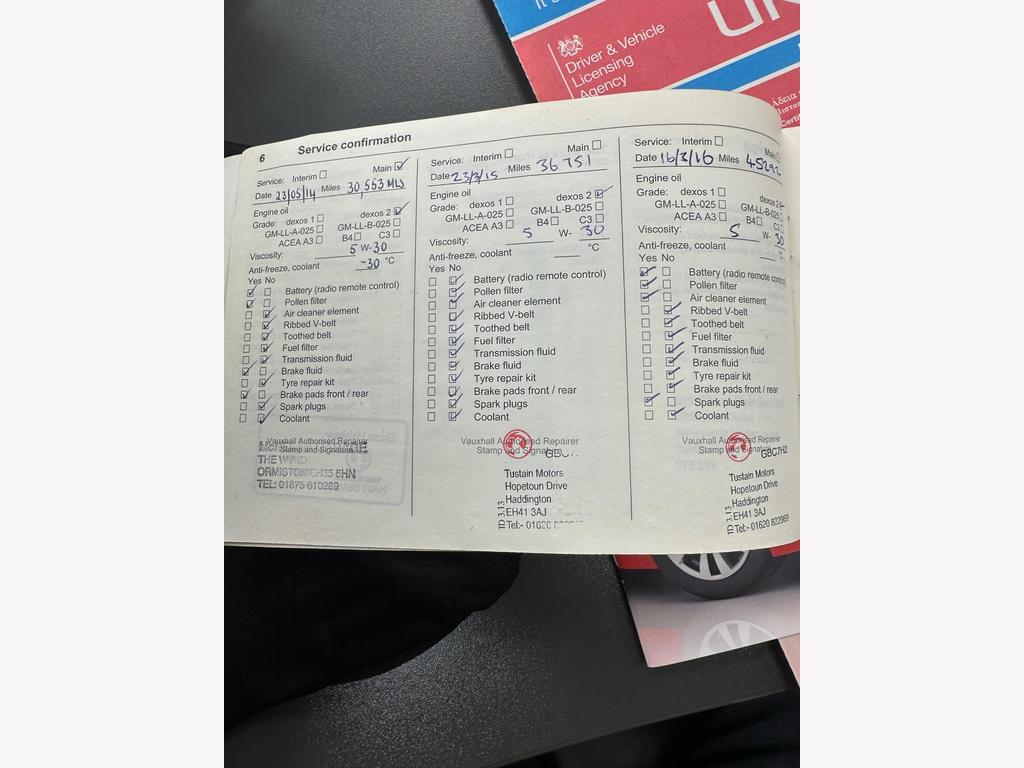 It's
UK
Driver & Vehicle
Licensing
Agency
6 Service confirmation
Service: Interim Main
Date 23/05/14 Miles 30,553 MLS
Engine oil
Grade: dexos 1 dexos 2
GM-LL-A-025 GM-LL-B-025
ACEA A3 B4 C3
Viscosity: 5 W-30
Anti-freeze, coolant -30 °C
Yes No
Battery (radio remote control)
Pollen filter
Air cleaner element
Ribbed V-belt
Toothed belt
Fuel filter
Transmission fluid
Brake fluid
Tyre repair kit
Brake pads front / rear
Spark plugs
Coolant
Vauxhall Authorised Repairer
Stamp and Signature
THE WYND
ORMISTON EH35 5HN
TEL: 01875 610289
Service: Interim Main
Date 23/3/15 Miles 36 751
Engine oil
Grade: dexos 1 dexos 2
GM-LL-A-025 GM-LL-B-025
ACEA A3 B4 C3
Viscosity: 5 W- 30
Anti-freeze, coolant °C
Yes No
Battery (radio remote control)
Pollen filter
Air cleaner element
Ribbed V-belt
Toothed belt
Fuel filter
Transmission fluid
Brake fluid
Tyre repair kit
Brake pads front / rear
Spark plugs
Coolant
Vauxhall Authorised Repairer
Stamp and Signature
Tustain Motors
Hopetoun Drive
Haddington
EH41 3AJ
Tel:- 01620
ID 3.13
Service: Interim Main
Date 16/3/16 Miles 45292
Engine oil
Grade: dexos 1 dexos 2
GM-LL-A-025 GM-LL-B-025
ACEA A3 B4
Viscosity: 5 W- 30
Anti-freeze, coolant °C
Yes No
Battery (radio remote control)
Pollen filter
Air cleaner element
Ribbed V-belt
Toothed belt
Fuel filter
Transmission fluid
Brake fluid
Tyre repair kit
Brake pads front / rear
Spark plugs
Coolant
Vauxhall Authorised Repairer
Stamp and Signature
GBC7H2
Tustain Motors
Hopetoun Drive
Haddington
EH41 3AJ
Tel:- 01620 822969
ID 3.13